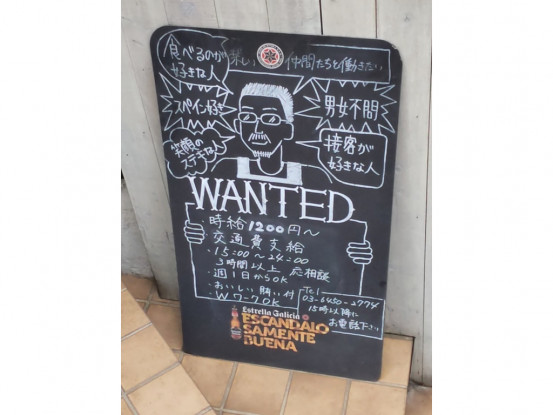 食べるのが
好きな人
楽しい仲間たちと働きたい
スペイン好き
男女不問
笑顔の
ステキな人
接客が
好きな人
WANTED
・時給1200円〜
・交通費支給
・15:00〜24:00
3時間以上 応相談
・週1日からOK
・おいしい賄い付
・WワークOK
Tel
03-6450-2774
15時以降に
お電話下さい
Estrella Galicia
ESCANDALO
SAMENTE
BUENA